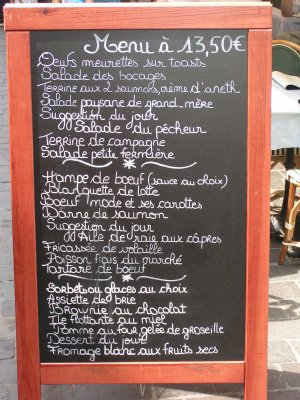 Menu à 13,50€
Oeufs meurettes sur toasts
Salade des bocages
Terrine aux 2 saumons, crème d'aneth
Salade paysane de grand-mère
Suggestion du jour
Salade du pêcheur
Terrine de campagne
Salade petite fermière
Hampe de boeuf (sauce au choix)
Blanquette de lotte
Boeuf mode et ses carottes
Darne de saumon
Suggestion du jour
Aile de raie aux câpres
Fricassée de volaille
Poisson frais du marché
Tartare de boeuf
Sorbet ou glaces au choix
Assiette de brie
Brownie au chocolat
Ile flottante au miel
Pomme au four gelée de groseille
Dessert du jour
Fromage blanc aux fruits secs